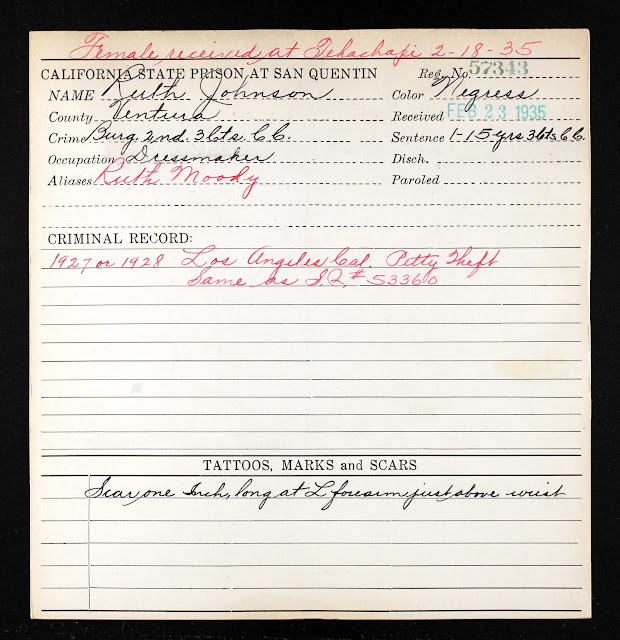 Female received at Tehachapi 2-18-35
CALIFORNIA STATE PRISON AT SAN QUENTIN Reg. No. 57343
NAME Ruth Johnson Color Negress
County Ventura Received FEB 23 1935
Crime Burg. 2nd. 3cts. C.C. Sentence 1-15 yrs 3cts C.C.
Occupation Dressmaker Disch.
Aliases Ruth Moody Paroled
CRIMINAL RECORD:
1927 or 1928 Los Angeles Cal. Petty Theft
Same as S.Q. # 53360
TATTOOS, MARKS and SCARS
Scar one Inch, long at L forearm just above wrist